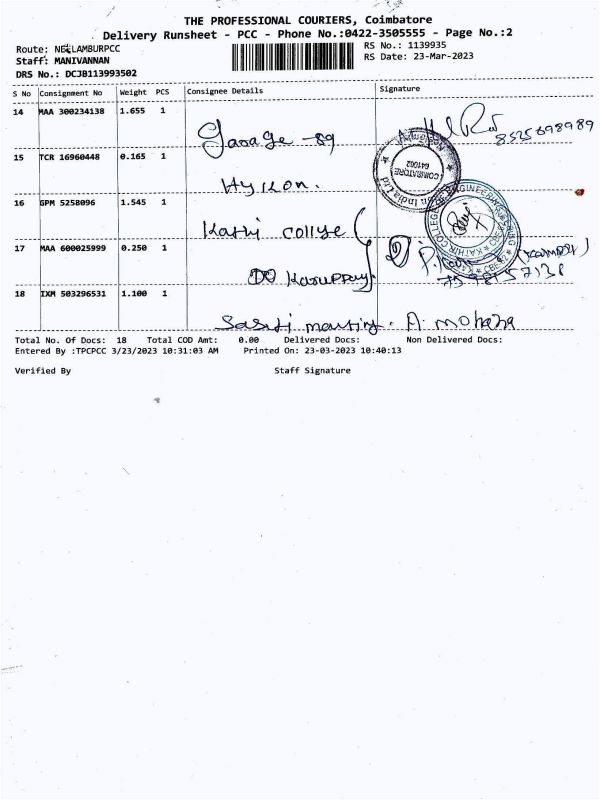 THE PROFESSIONAL COURIERS, Coimbatore
Delivery Runsheet - PCC - Phone No.:0422-3505555 - Page No.:2
Route: NEELAMBURPCC
RS No.: 1139935
Staff: MANIVANNAN
RS Date: 23-Mar-2023
DRS No.: DCJB113993502
S No Consignment No Weight PCS Consignee Details Signature
14 MAA 300234138 1.655 1
Garage -89
8525698989
15 TCR 16960448 0.165 1
COIMBATORE
641062
16 GPM 5258096 1.545 1
Kathi college
17 MAA 600025999 0.250 1
18 IXM 503296531 1.100 1
A. mohana
Total No. Of Docs: 18 Total COD Amt: 0.00 Delivered Docs: Non Delivered Docs:
Entered By :TPCPCC 3/23/2023 10:31:03 AM Printed On: 23-03-2023 10:40:13
Verified By Staff Signature